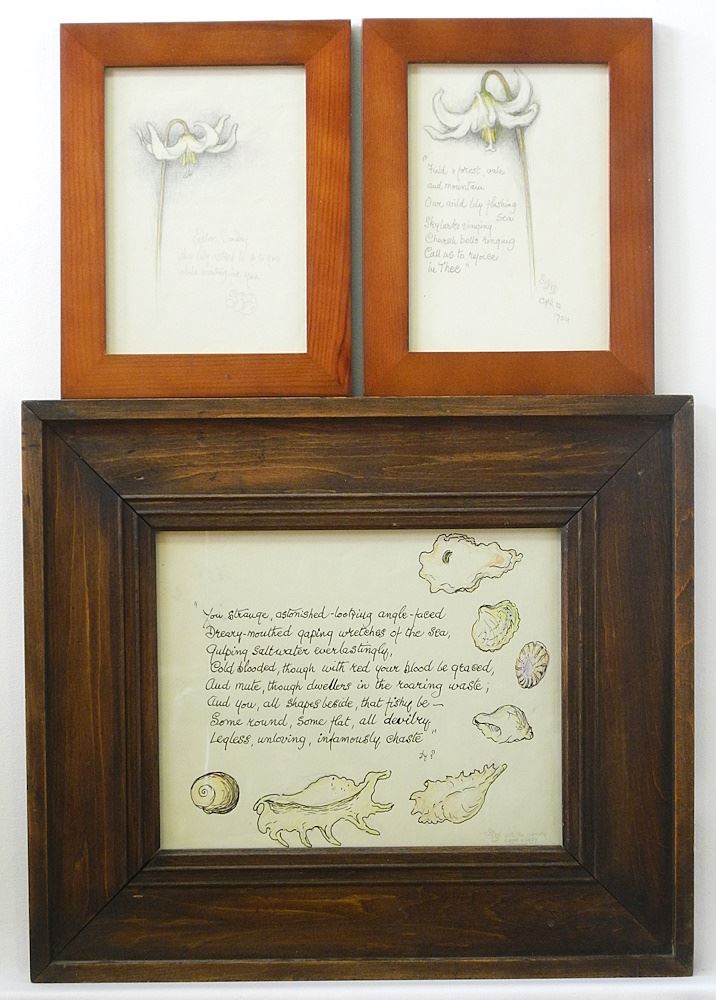 "Field & forest, vale
and mountain
Our wild lily flashing
sea
Skylarks singing
Church bells ringing
Call us to rejoice
in Thee"
1984
"You strange, astonished-looking angle-faced
Dreary-mouthed gaping wretches of the sea,
Gulping saltwater everlastingly,
Cold blooded, though with red your blood be graced,
And mute, though dwellers in the roaring waste;
And you, all shapes beside, that fishy be —
Some round, some flat, all devilry,
Legless, unloving, infamously chaste"
by ?